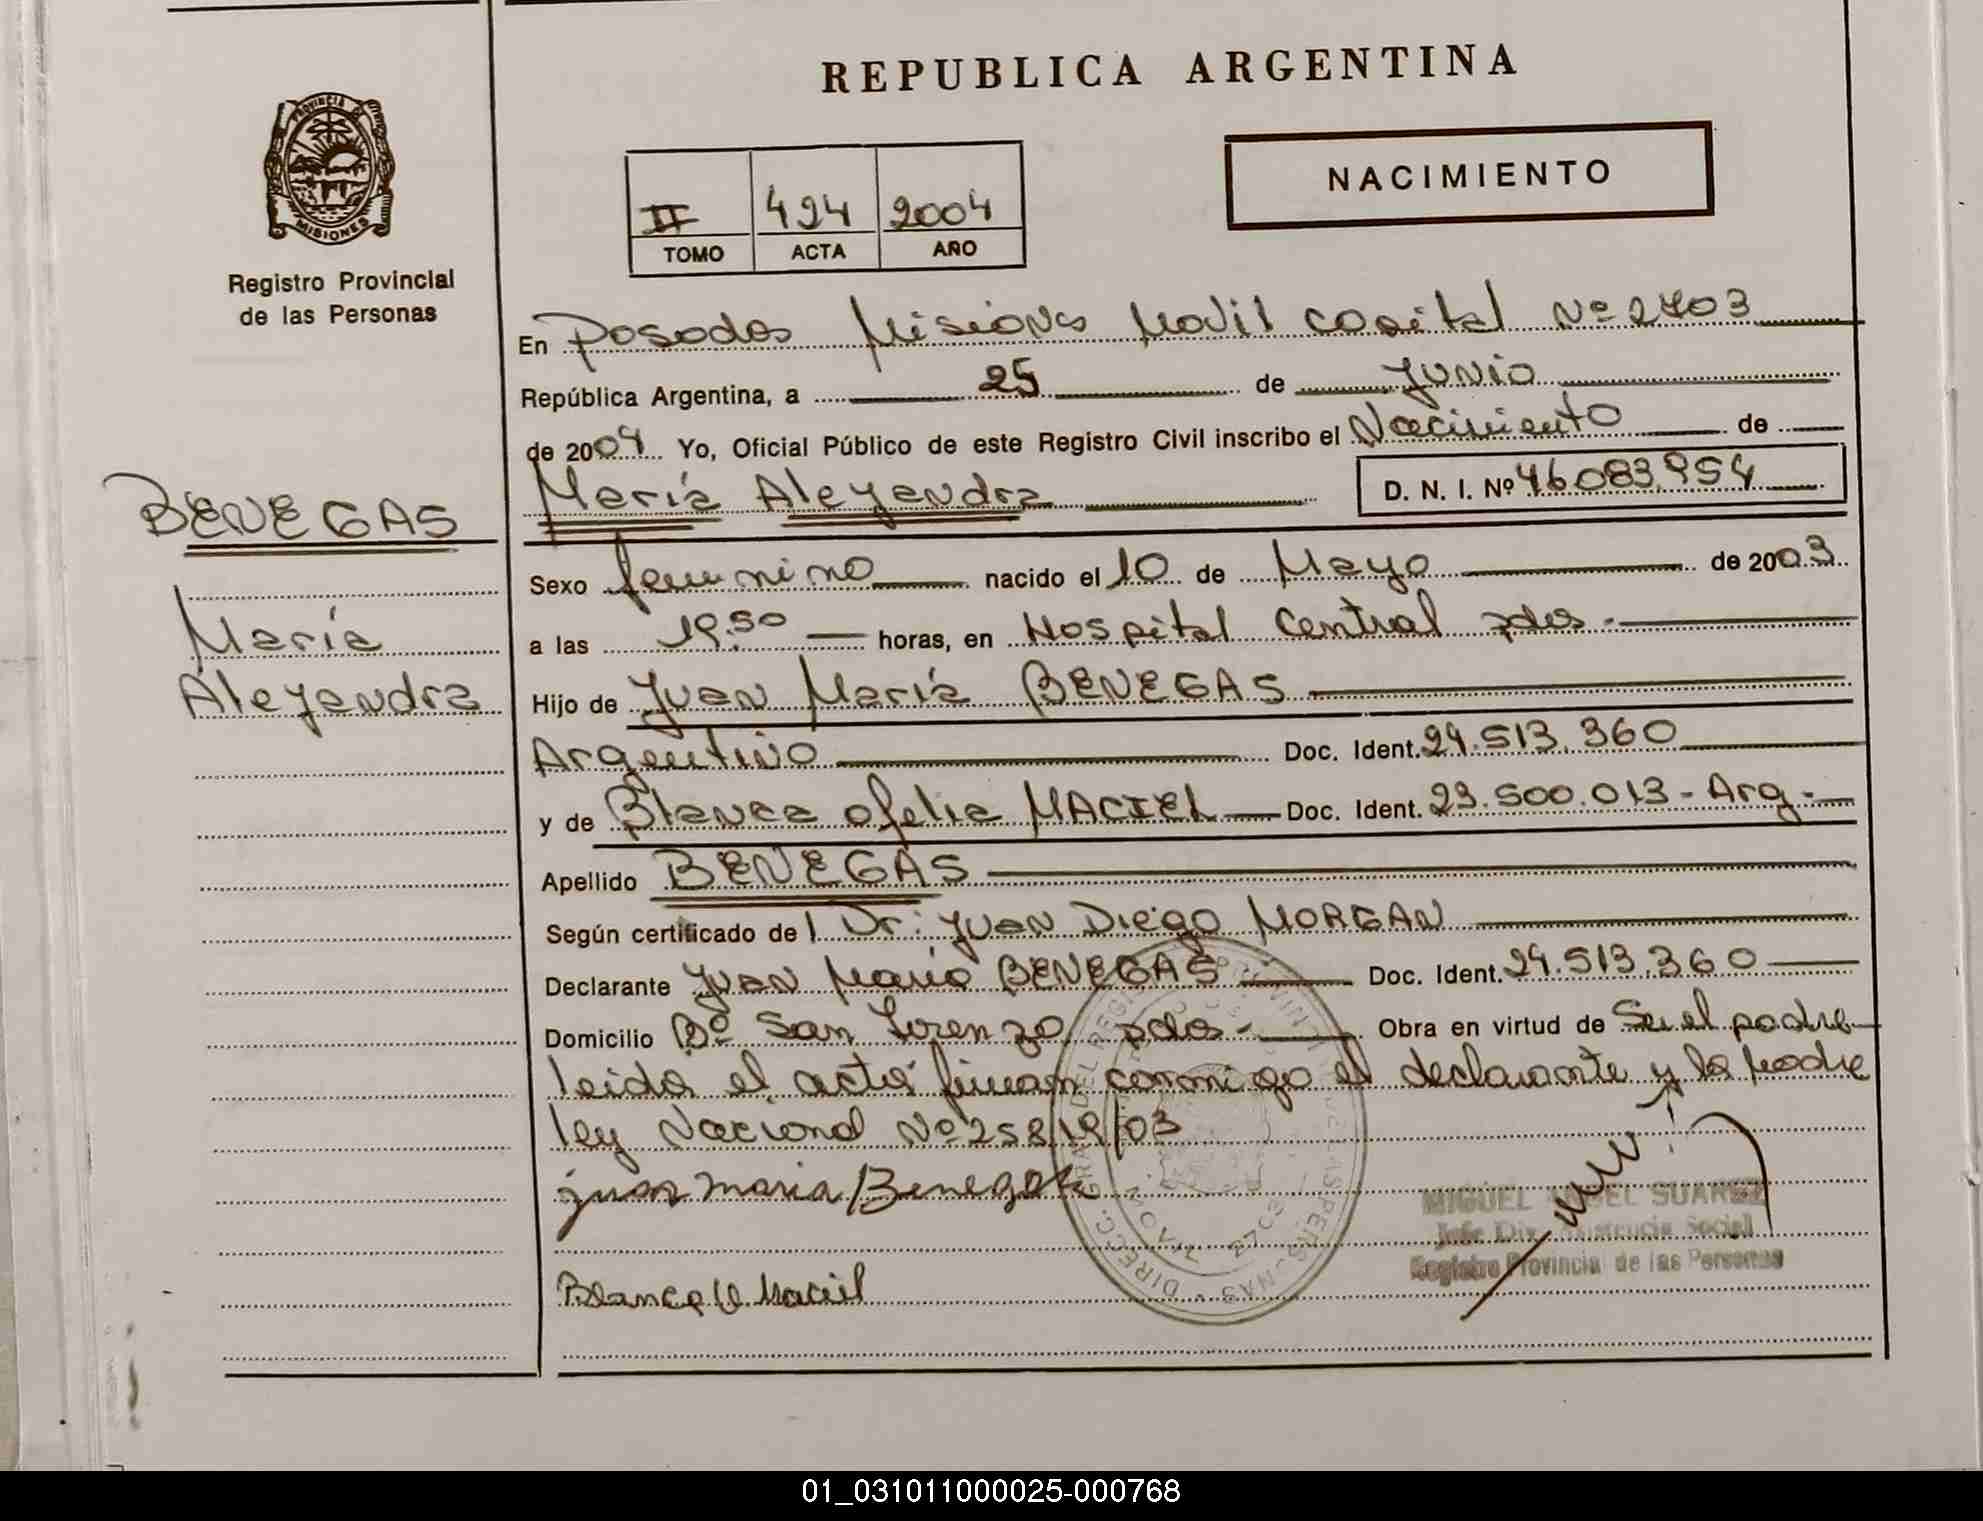 REPUBLICA ARGENTINA
PROVINCIA DE MISIONES
Registro Provincial
de las Personas
NACIMIENTO
II 494 2004
TOMO ACTA AÑO
En Posadas Misiones Movil Capital Nº 2703
República Argentina, a 25 de Junio
de 2004 Yo, Oficial Público de este Registro Civil inscribo el Nacimiento de
María Aleyandra D. N. I. Nº 46083.954
BENEGAS
María
Aleyandra
Sexo femenino nacido el 10 de Mayo de 2003
a las 19.50 horas, en Hospital Central pdas.
Hijo de Juan María BENEGAS
Argentino Doc. Ident. 24.513.360
y de Blanca Ofelia MACIEL Doc. Ident. 23.500.013 - Arg.-
Apellido BENEGAS
Según certificado de l Dr: Juan Diego MORGAN
Declarante Juan María BENEGAS Doc. Ident. 24.513.360
Domicilio Bº San Lorenzo pdas.- Obra en virtud de Ser el padre
leida el acta firman conmigo el declarante y la madre
ley Nacional Nº 25819/03
juan maria Benegas
Blanca O Maciel
MIGUEL ANGEL SUAREZ
Jefe Div. Asistencia Social
Registro Provincial de las Personas
01_031011000025-000768